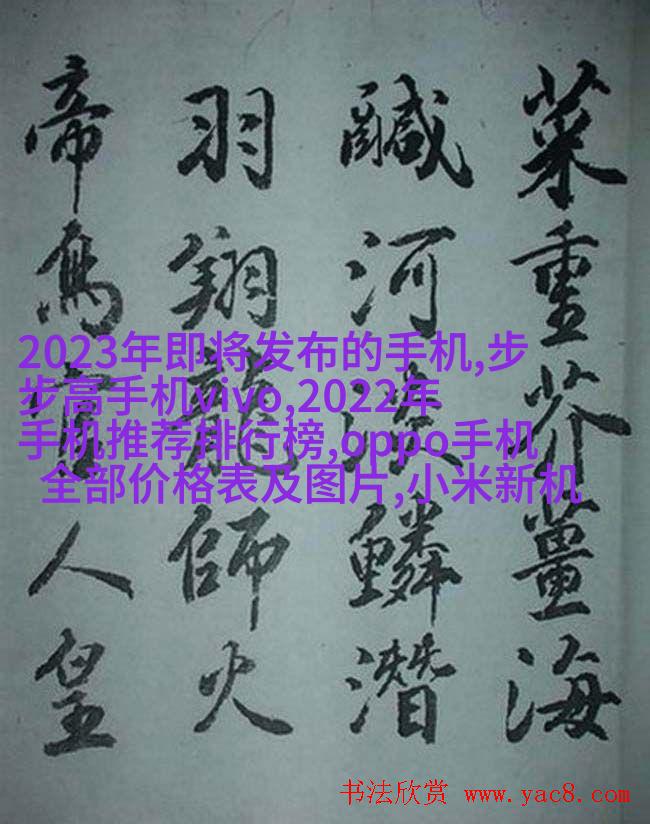 菜重芥薑海
鹹河淡鱗潛
羽翔龍師火
帝鳥官人皇
2023年即将发布的手机,步
步高手机vivo,2022年
手机推荐排行榜,oppo手机
全部价格表及图片,小米新机
书法欣赏 www.yac8.com